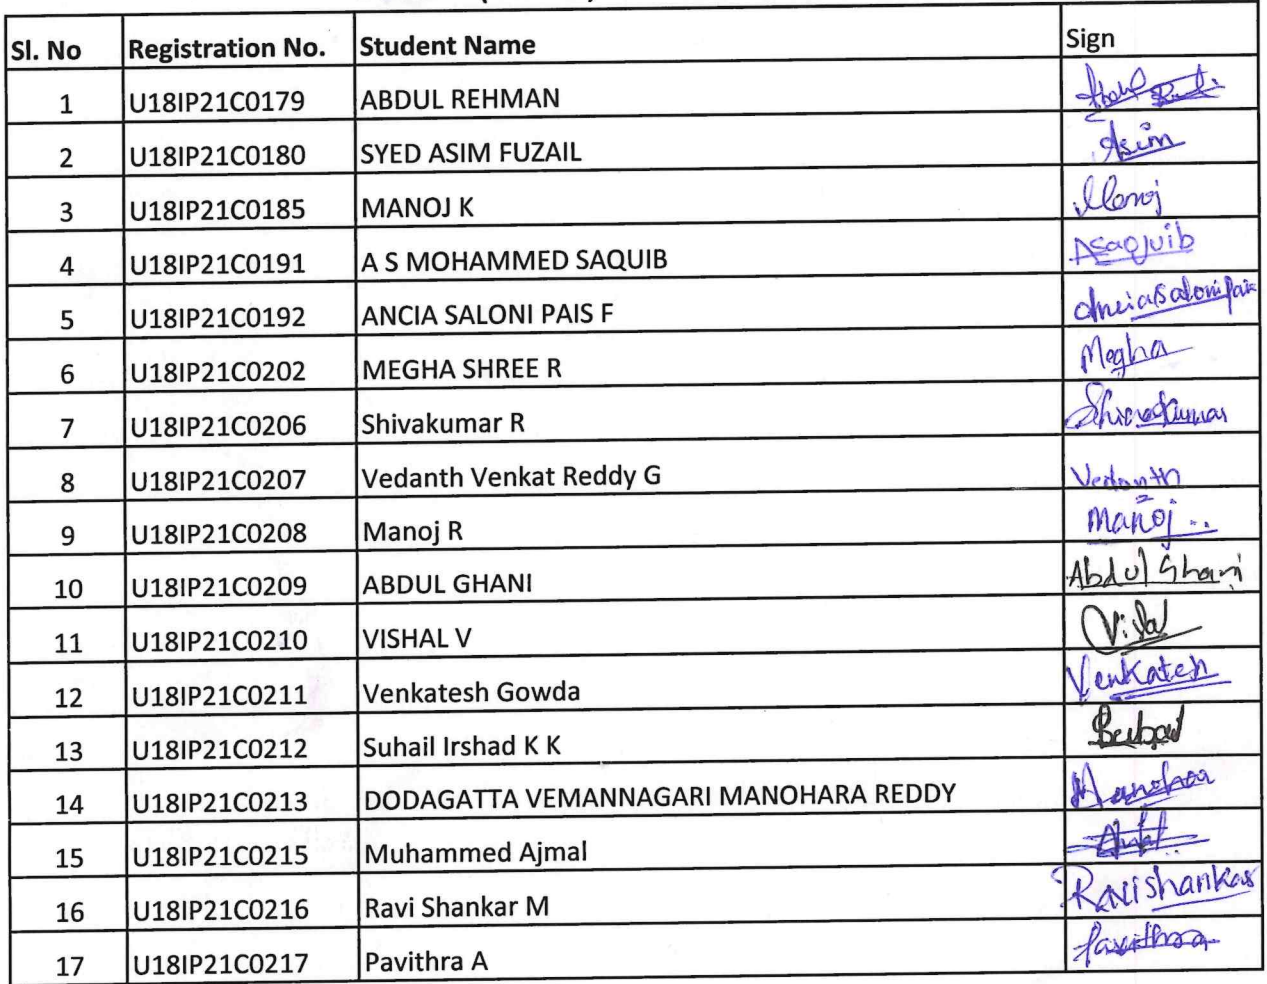 Sl. No Registration No. Student Name Sign
1 U18IP21C0179 ABDUL REHMAN
2 U18IP21C0180 SYED ASIM FUZAIL Asim
3 U18IP21C0185 MANOJ K Manoj
4 U18IP21C0191 A S MOHAMMED SAQUIB ASaquib
5 U18IP21C0192 ANCIA SALONI PAIS F Ancia Saloni Pais
6 U18IP21C0202 MEGHA SHREE R Megha
7 U18IP21C0206 Shivakumar R Shivakumar
8 U18IP21C0207 Vedanth Venkat Reddy G Vedanth
9 U18IP21C0208 Manoj R Manoj
10 U18IP21C0209 ABDUL GHANI Abdul Ghani
11 U18IP21C0210 VISHAL V
12 U18IP21C0211 Venkatesh Gowda Venkatesh
13 U18IP21C0212 Suhail Irshad K K
14 U18IP21C0213 DODAGATTA VEMANNAGARI MANOHARA REDDY
15 U18IP21C0215 Muhammed Ajmal
16 U18IP21C0216 Ravi Shankar M Ravishankar
17 U18IP21C0217 Pavithra A Pavithra